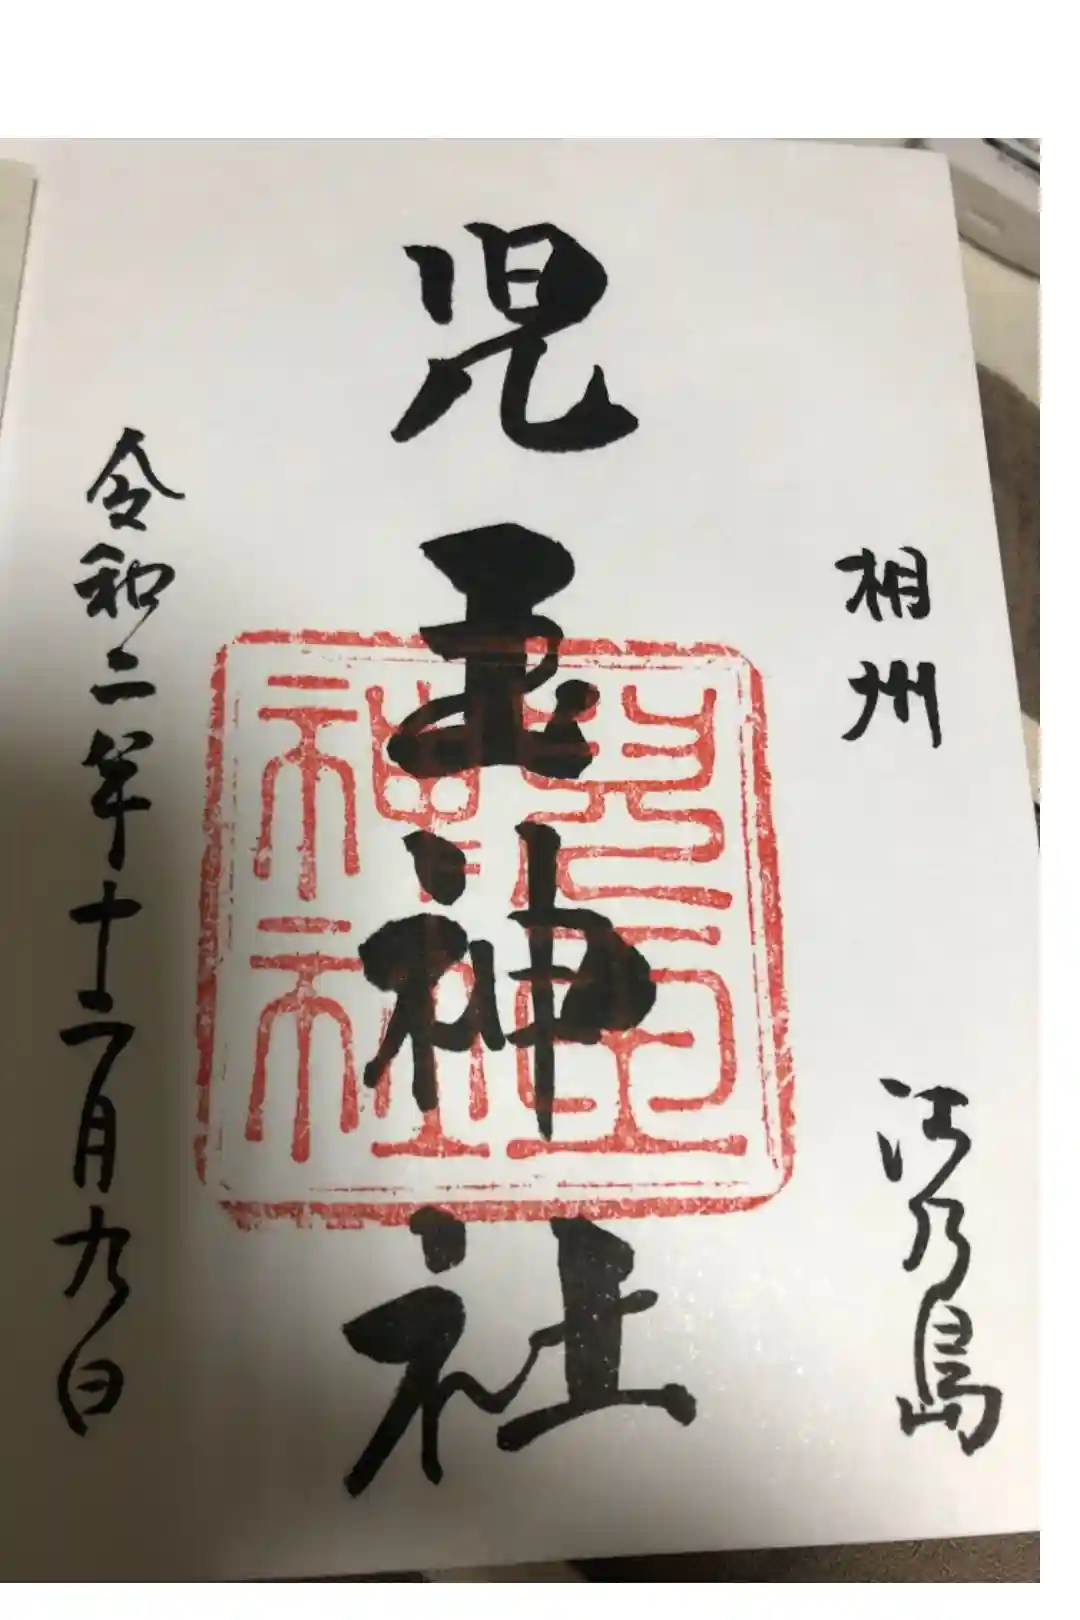 相州 江乃島
児玉神社
令和二年十二月九日
兒玉
神社